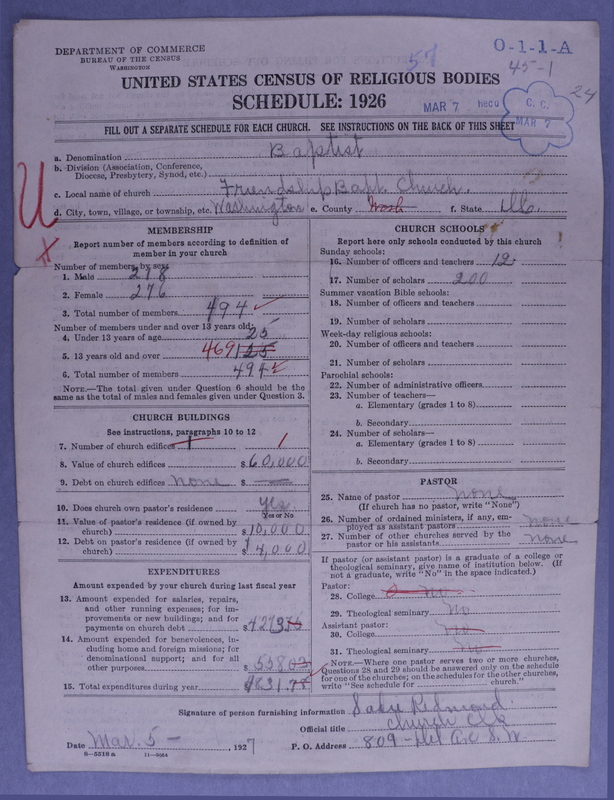 DEPARTMENT OF COMMERCE
BUREAU OF THE CENSUS
WASHINGTON
57
O-1-1-A
45-1
24
UNITED STATES CENSUS OF RELIGIOUS BODIES
SCHEDULE: 1926
MAR 7 RECD
C. C.
MAR 7
FILL OUT A SEPARATE SCHEDULE FOR EACH CHURCH. SEE INSTRUCTIONS ON THE BACK OF THIS SHEET
a. Denomination Baptist
b. Division (Association, Conference, Diocese, Presbytery, Synod, etc.)
c. Local name of church Friendship Bapt. Church.
d. City, town, village, or township, etc. Washington e. County Wash f. State
U
MEMBERSHIP
Report number of members according to definition of member in your church
Number of members by sex:
1. Male 218
2. Female 276
3. Total number of members 494
Number of members under and over 13 years old:
4. Under 13 years of age 25
5. 13 years old and over 469 125
6. Total number of members 494
NOTE.—The total given under Question 6 should be the same as the total of males and females given under Question 3.
CHURCH BUILDINGS
See instructions, paragraphs 10 to 12
7. Number of church edifices 1 1
8. Value of church edifices $ 60,000
9. Debt on church edifices none $
10. Does church own pastor's residence yes
Yes or No
11. Value of pastor's residence (if owned by church) $ 10,000
12. Debt on pastor's residence (if owned by church) $ 4,000
EXPENDITURES
Amount expended by your church during last fiscal year
13. Amount expended for salaries, repairs, and other running expenses; for improvements or new buildings; and for payments on church debt $
14. Amount expended for benevolences, including home and foreign missions; for denominational support; and for all other purposes $
15. Total expenditures during year
CHURCH SCHOOLS
Report here only schools conducted by this church
Sunday schools:
16. Number of officers and teachers 12
17. Number of scholars 200
Summer vacation Bible schools:
18. Number of officers and teachers
19. Number of scholars
Week-day religious schools:
20. Number of officers and teachers
21. Number of scholars
Parochial schools:
22. Number of administrative officers
23. Number of teachers—
a. Elementary (grades 1 to 8)
b. Secondary
24. Number of scholars—
a. Elementary (grades 1 to 8)
b. Secondary
PASTOR
25. Name of pastor none
(If church has no pastor, write "None")
26. Number of ordained ministers, if any, employed as assistant pastors none
27. Number of other churches served by the pastor or his assistants none
If pastor (or assistant pastor) is a graduate of a college or theological seminary, give name of institution below. (If not a graduate, write "No" in the space indicated.)
Pastor:
28. College no
29. Theological seminary no
Assistant pastor:
30. College no
31. Theological seminary no
NOTE.—Where one pastor serves two or more churches, Questions 28 and 29 should be answered only on the schedule for one of the churches; on the schedules for the other churches, write "See schedule for church."
Signature of person furnishing information Redmond
Official title Church Clk
Date Mar. 5 — , 1927 P. O. Address 809 - Del Av. S. W.
8—5518 a 11—9564